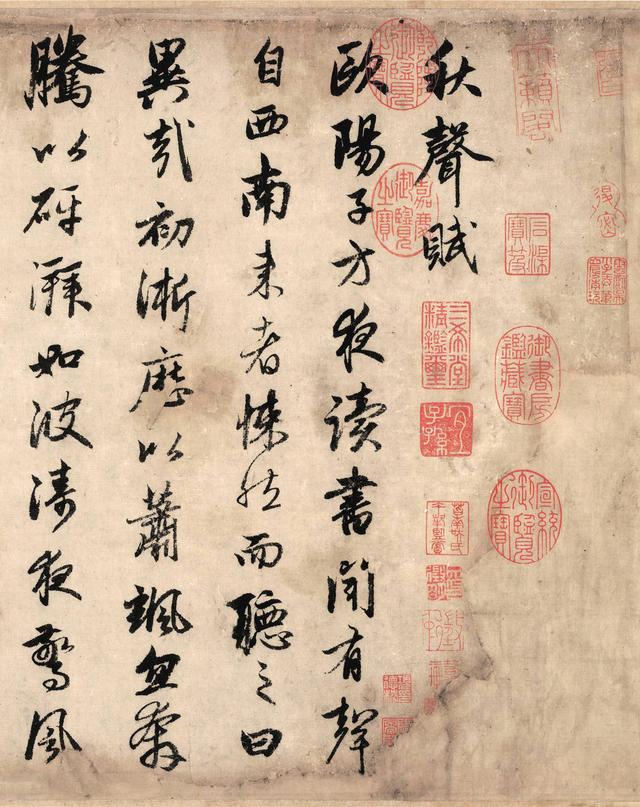 天籟閣
石渠寶笈
御書房鑑藏寶
宣統御覽之寶
三希堂精鑑璽
宜子孫
乾隆御覽之寶
嘉慶御覽之寶
秋聲賦
歐陽子方夜讀書聞有聲
自西南来者悚然而聽之曰
異哉初淅歷以蕭颯忽奔
騰以砰湃如波濤夜驚風